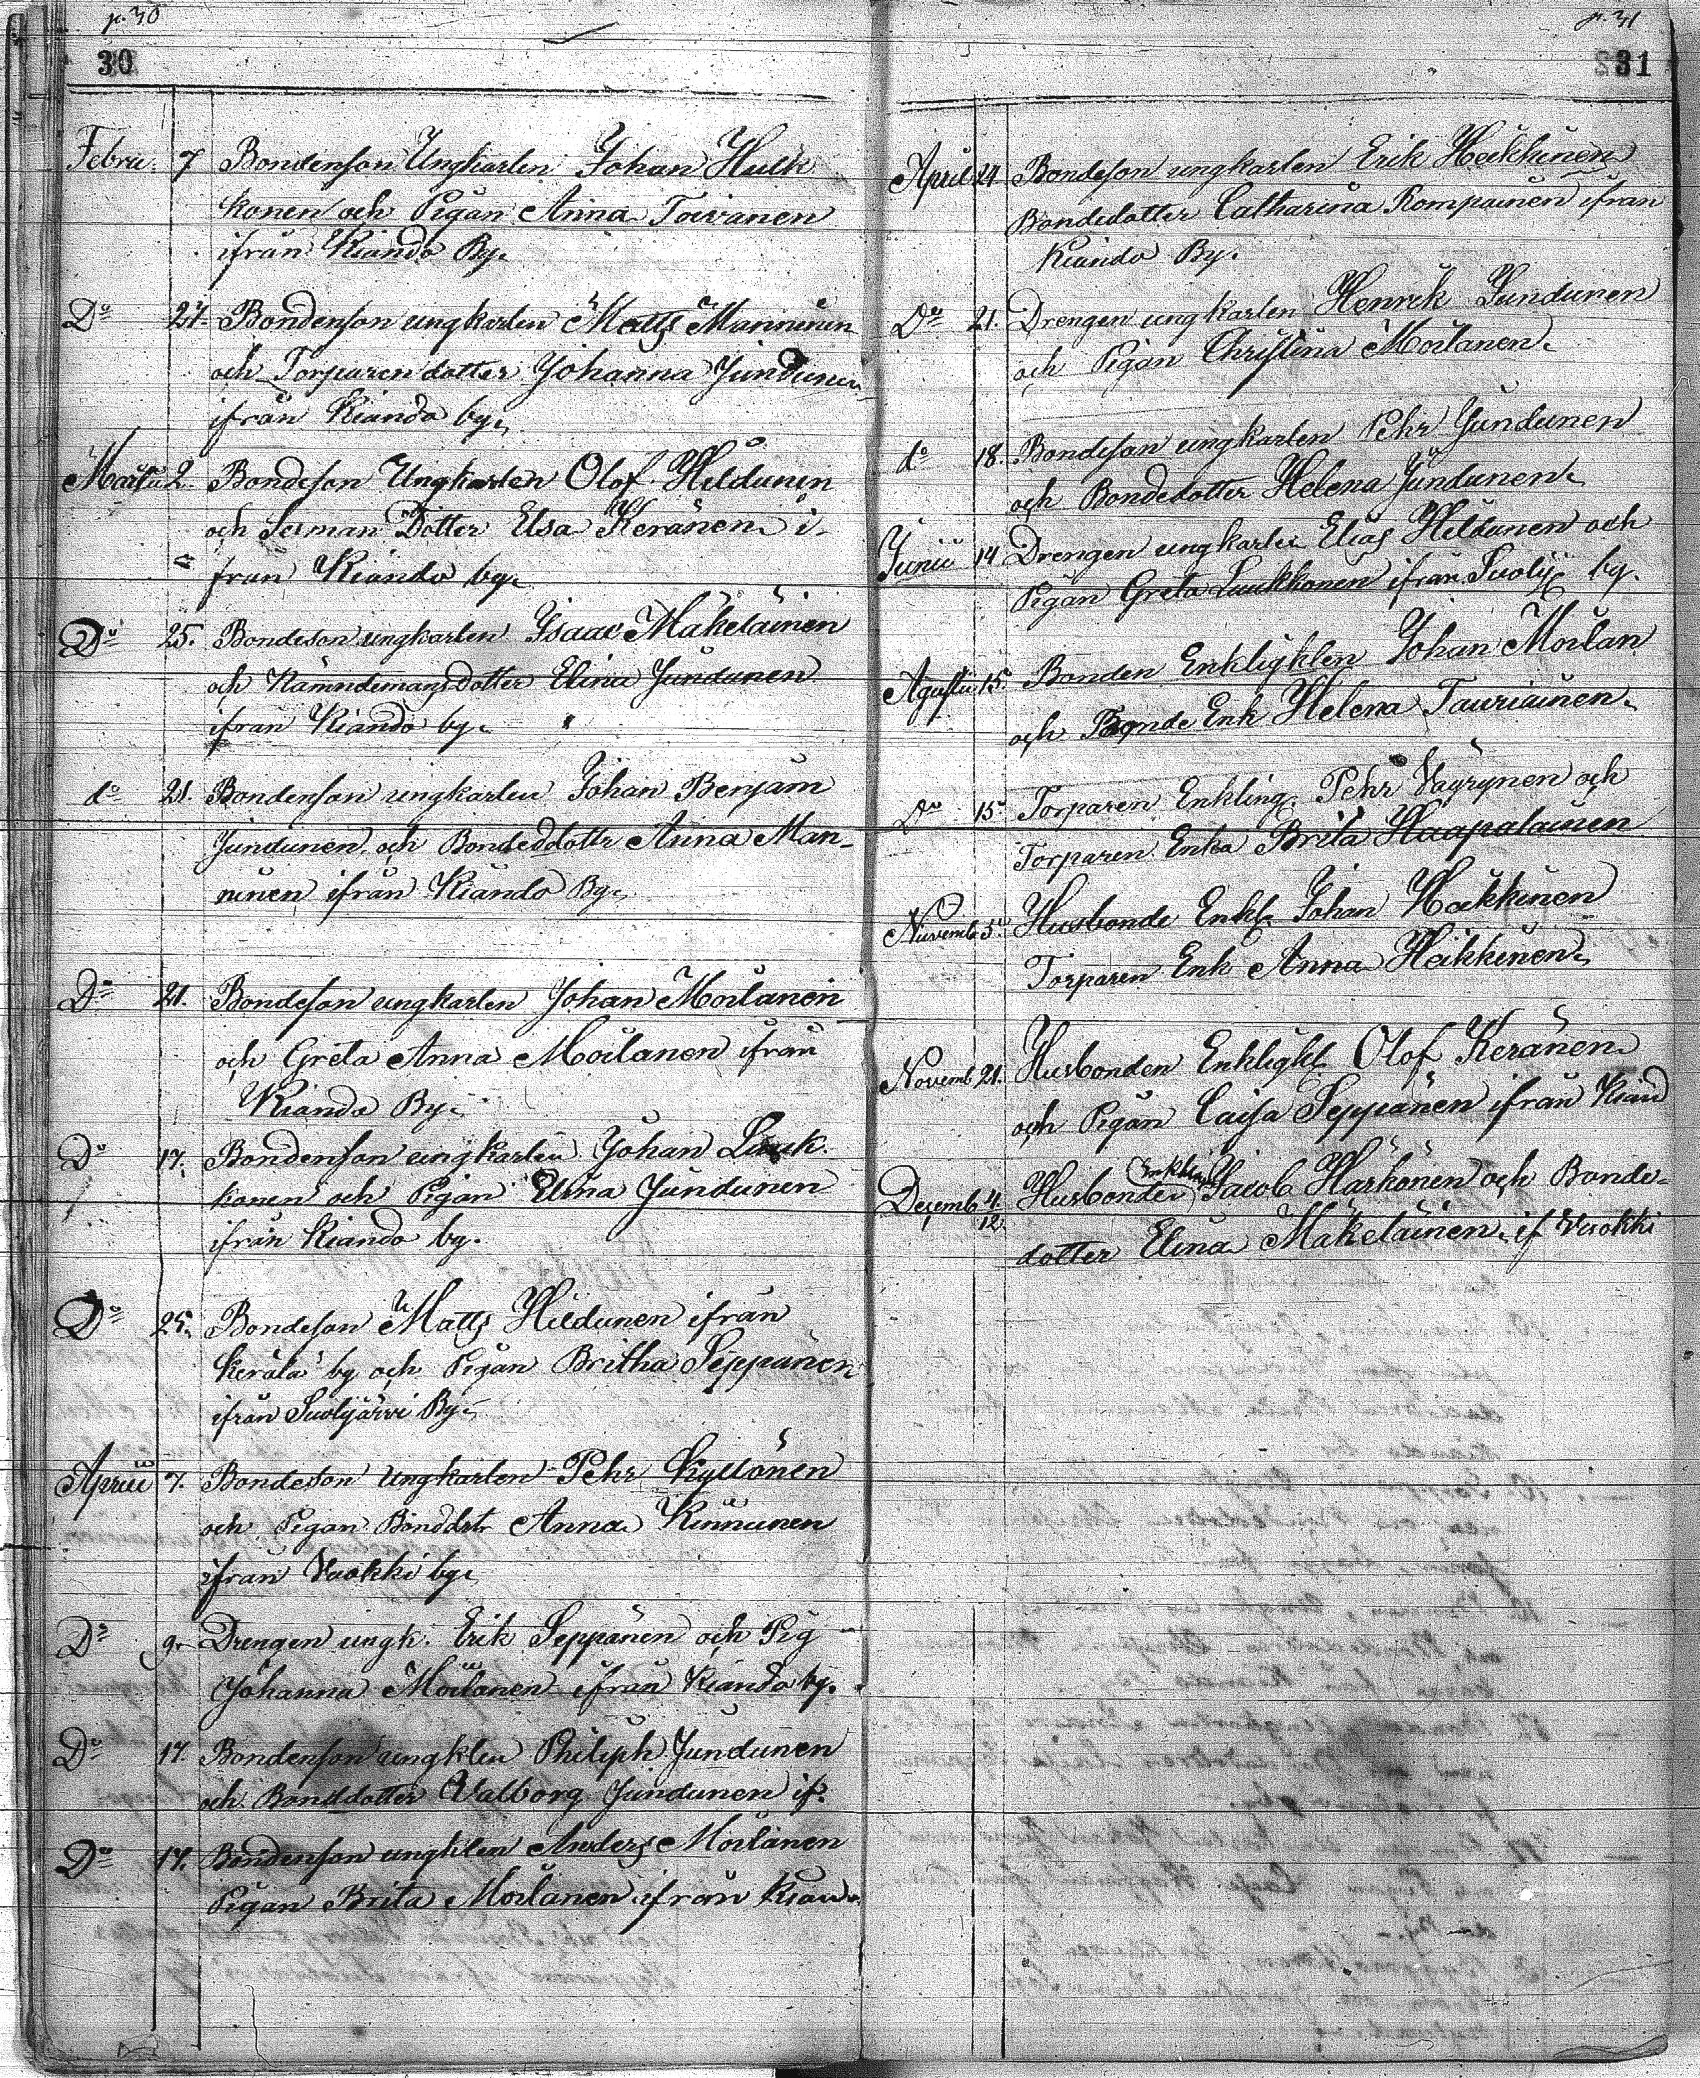 p. 30
30
Februa. 7 Bondenson Ungkarlen Johan Hulk
konen och Pigan Anna Toivanen
ifrån Kiando By.
Do 27. Bondenson ungkarlen Matts Manninen
och Torparendotter Johanna Jundunen
ifrån Kiando by.
Martii 2. Bondeson Ungkarlen Olof Heldunen
och Dotter Elsa Keränen i-
från Kiando by.
Do 25. Bondeson ungkarlen Isaac Mäkeläinen
och Nämndemans Dotter Elina Jundunen
ifrån Kiando by.
do 21. Bondenson ungkarlen Johan Benjam
Jundunen och Bondeddotter Anna Man-
ninen ifrån Kiando By.
Do 21. Bondeson ungkarlen Johan Moilanen
och Greta Anna Moilanen ifrån
Kiando By.
Do 17. Bondenson ungkarlen Johan Luuk-
konen och Pigan Elina Jundunen
ifrån Kiando by.
Do 25. Bondeson Matts Heldunen ifrån
Kerälä by och Pigan Britha Seppänen
ifrån Suolijärvi By.
Aprill 7. Bondeson Ungkarlen Pehr Kyllönen
och Pigan Bonddotr Anna Kinnunen
ifrån Vuokki by.
Do 9. Drengen ungk. Erik Seppänen och Pig
Johanna Moilanen ifrån Kiando by.
Do 17. Bondenson ungklen Philiph Jundunen
och Bonddotter Valborg Jundunen if.
Do 17. Bondenson ungklen Anders Moilanen
Pigan Brita Moilanen ifrån Kian.
p. 31
31
April 24 Bondeson ungkarlen Erik Heikkinen
Bondedotter Catharina Rompainen ifrån
Kiando By.
Do 21. Drengen ungkarlen Henrik Jundunen
och Pigan Christina Moilanen.
do 18. Bondeson ungkarlen Pehr Jundunen
och Bondedotter Helena Jundunen.
Junii 14 Drengen ungkarlen Elias Heldunen och
Pigan Greta Luukkonen ifrån Suolij by.
Agusti 15. Bonden Enkligklen Johan Moilan
och Bonde Enk Helena Tauriainen.
Do 15. Torparen Enkling. Pehr Väyrynen och
Torparen Enka Brita Haapalainen
Nuvemb 5. Husbonde Enkl. Johan Heikkinen
Torparen Enk Anna Heikkinen.
Novemb 21. Husbonden Enkligkl Olof Keränen
och Pigan Caisa Seppänen ifrån Kiand
Decemb 4. Husbonden Enkling Jacob Härkönen och Bonde-
12
dotter Elina Mäkeläinen. if Vuokki